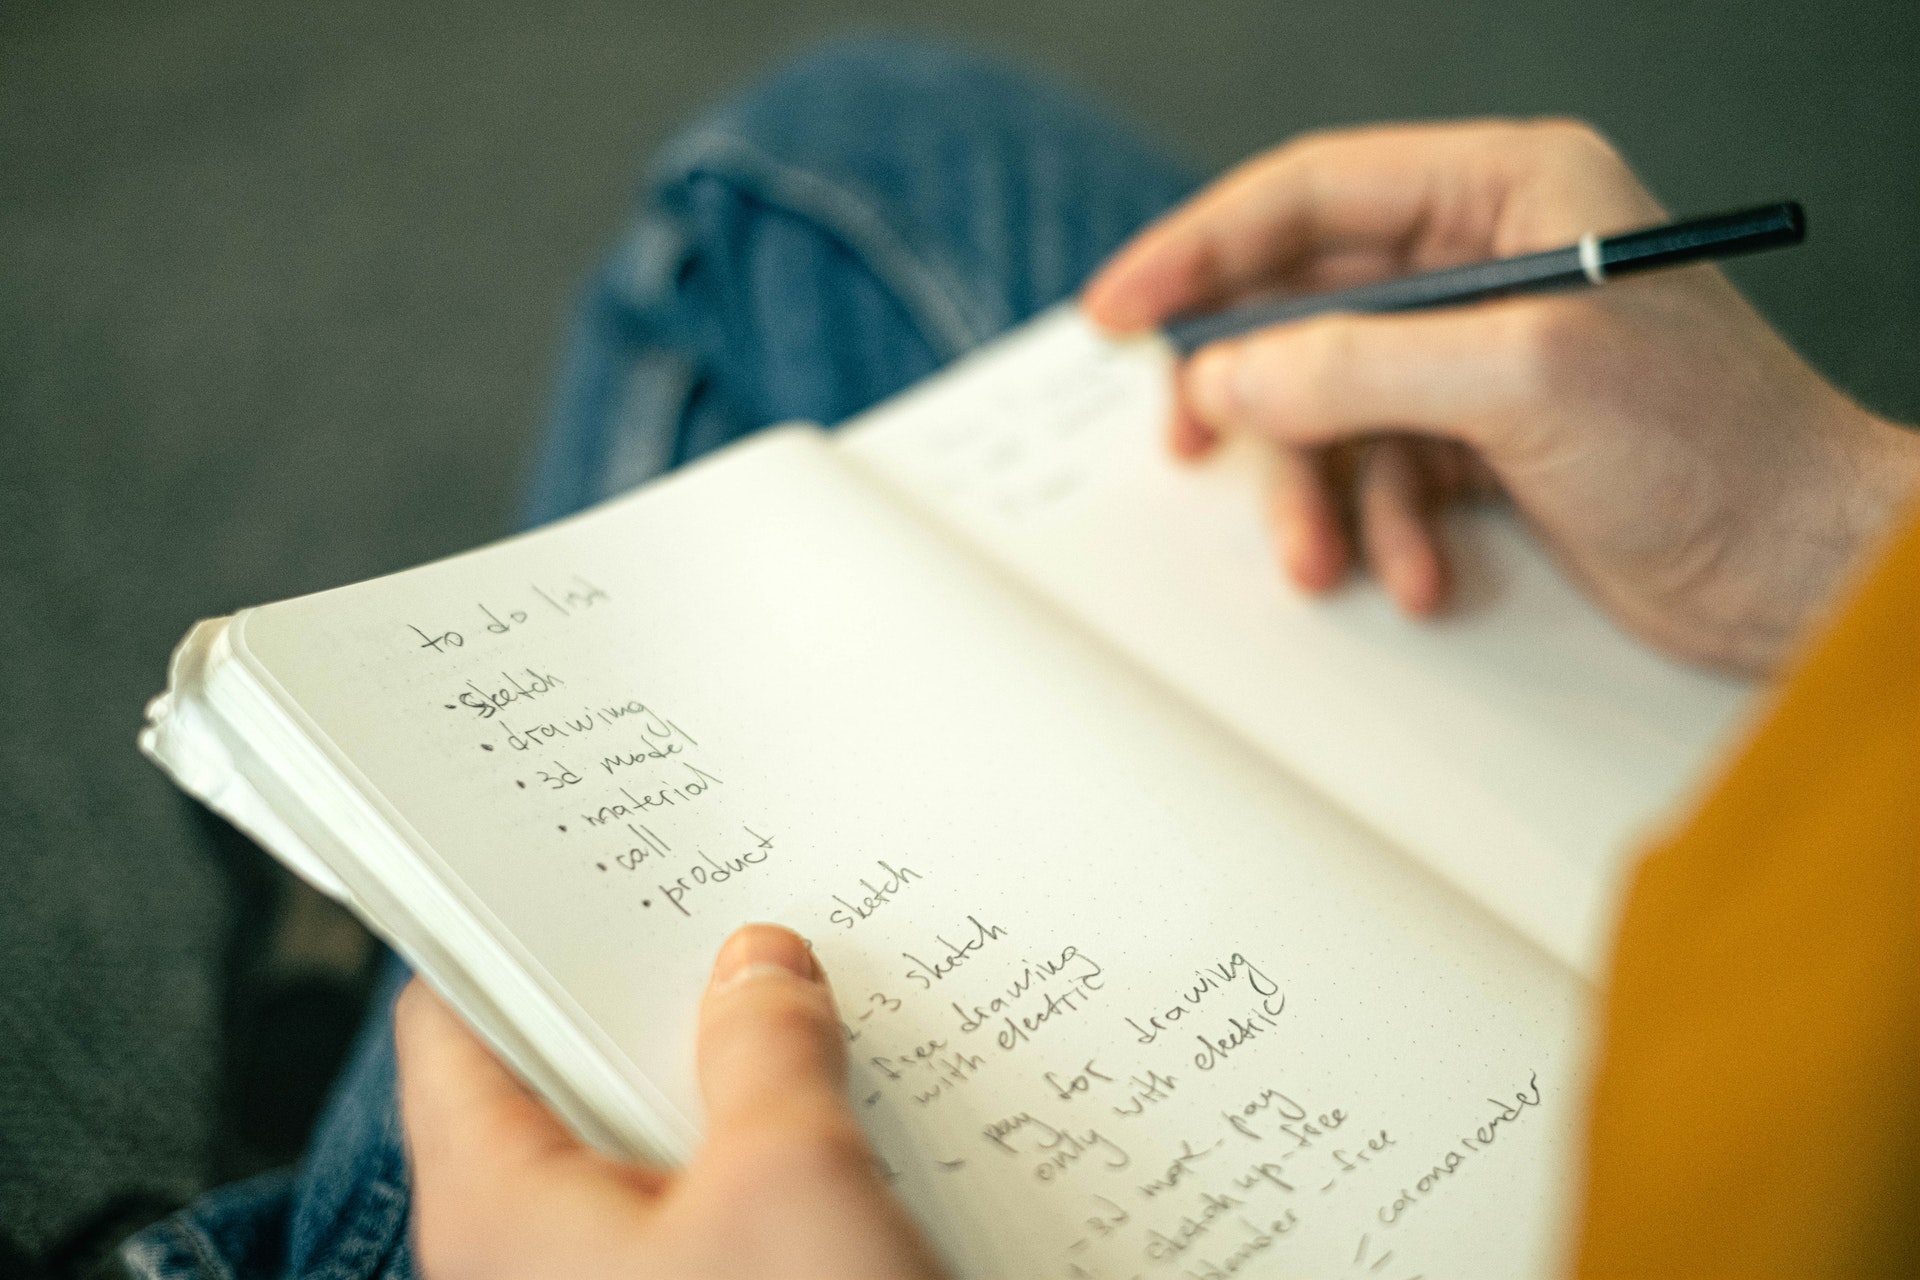 to do list
• sketch
• drawing
• 3d model
• material
• call
• product
sketch
2-3 sketch
- free drawing
with electric
- pay for drawing
only with electric
- 3d max - pay
sketch up - free
blender - free
= corona render